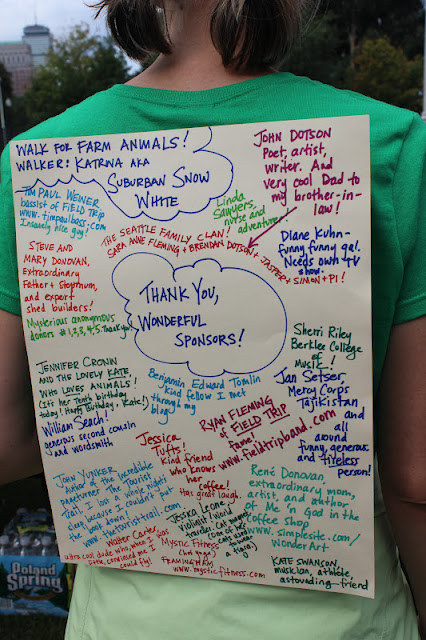 WALK FOR FARM ANIMALS!
WALKER: KATRINA AKA
SUBURBAN SNOW
WHITE
JOHN DOTSON
Poet, artist,
writer. And
very cool Dad to
my brother-in-
law!
TIM PAUL WEINER
bassist of FIELD TRIP
www.timpaulbass.com
Insanely nice guy!
Linda
Sawyers,
nurse and
adventurer!
THE SEATTLE FAMILY CLAN!
SARA ANNE FLEMING + BRENDAN DOTSON + JASPER + SIMON + PI!
Diane Kuhn-
funny funny gal.
Needs own TV
show.
STEVE AND
MARY DONOVAN,
Extraordinary
Father + Stepmum,
and expert
shed builders!
Mysterious anonymous
donors #1,2,3,4,5. Thank you!
THANK YOU,
WONDERFUL
SPONSORS!
Sherri Riley
Berklee College
of Musik!
JENNIFER CRONIN
AND THE LOVELY KATE,
WHO LOVES ANIMALS!
(It's her Tenth birthday
today! Happy Birthday, Kate!)
William Seach!
generous second cousin
and wordsmith
Benjamin Edward Tomlin
kind fellow I met
through my
blog!
Jan Setser,
Mercy Corps
Tajikistan
and
all
around
funny, generous
and tireless
person!
RYAN FLEMING
of FIELD TRIP
fame!
www.fieldtripband.com
Jessica
Tufts!
Kind friend
who knows
her
coffee!
Has great laugh.
JOHN YUNKER
author of the incredible
page turner The Tourist
Trail. I lost a whole night's
sleep because I couldn't put
the book down!
www.thetouristtrail.com
René Donovan,
extraordinary mom,
artist, and author
of Me 'n God in the
Coffee Shop
www.simplesite.com/
WonderArt
Jesika Leone,
Violinist! World
traveler. Cat mommy
(One of her
cats used
to weigh
a lion!)
Walter Carter,
ultra cool dude who, when I was
little, convinced me I could
fly!
MYSTIC FITNESS
(hot yoga)
FRAMINGHAM
www.mysticfitness.com
KATE SWANSON
musician, athlete,
astounding friend
POLAND
SPRING